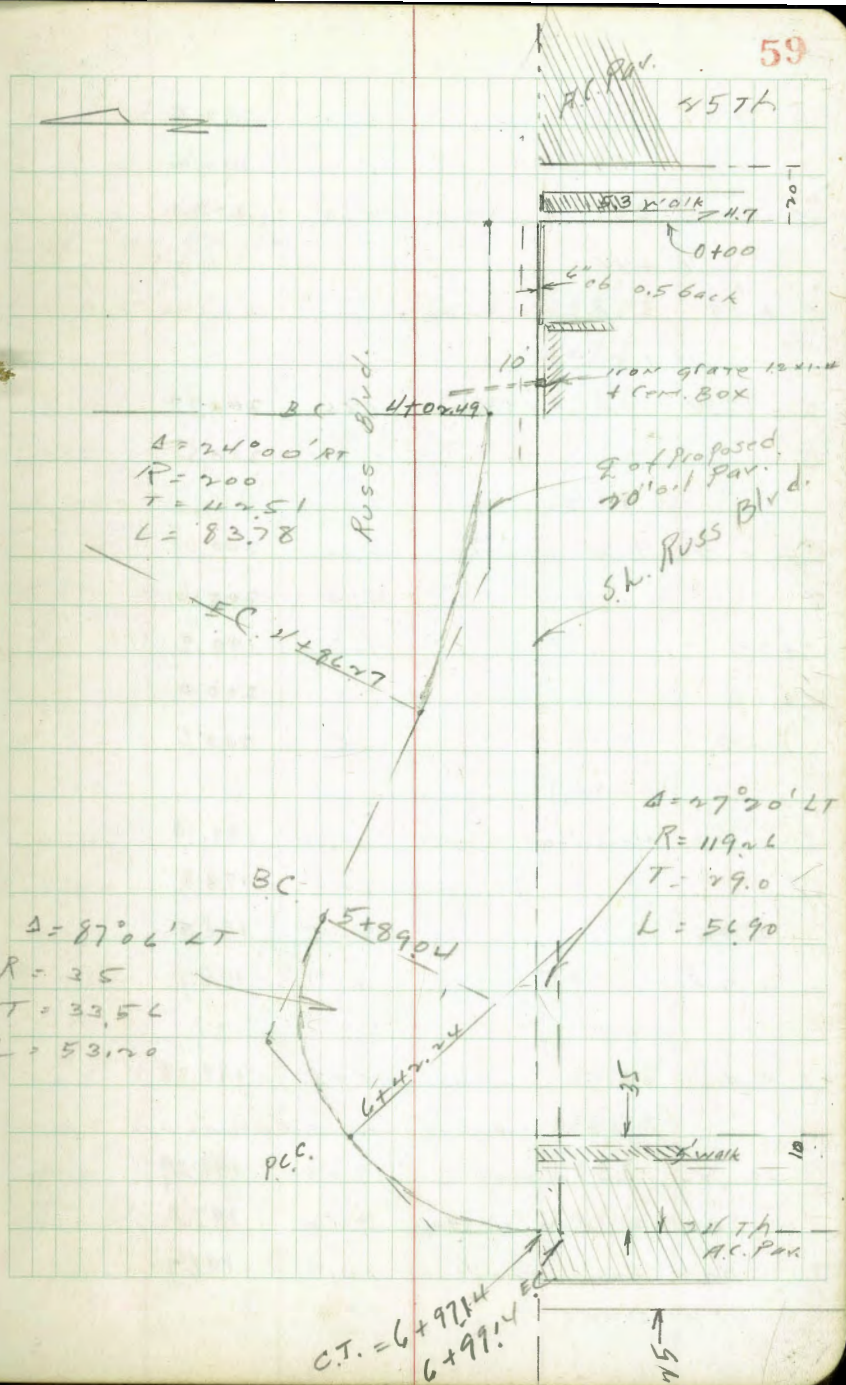 59
A.C. Pav.
25 Th
-20-
5.3 walk
4.7
0+00
6" cb 0.5 back
10'
Iron grate 1.2x1.4
+ Cem. Box
Russ Blvd.
B.C. 4+02.49
Δ = 24°00' RT
R = 200
T = 42.51
L = 83.78
℄ of Proposed
20' oil Pav.
S.L. Russ Blvd.
E.C. 4+86.27
Δ = 27°20' LT
R = 119.26
T = 29.0
L = 56.90
B.C.
5+89.04
Δ = 87°06' LT
R = 35
T = 33.56
L = 53.20
6+42.24
P.C.C.
35
5' walk
10
24 Th
A.C. Pav.
C.T. = 6+97.14
6+99.14 EC
54